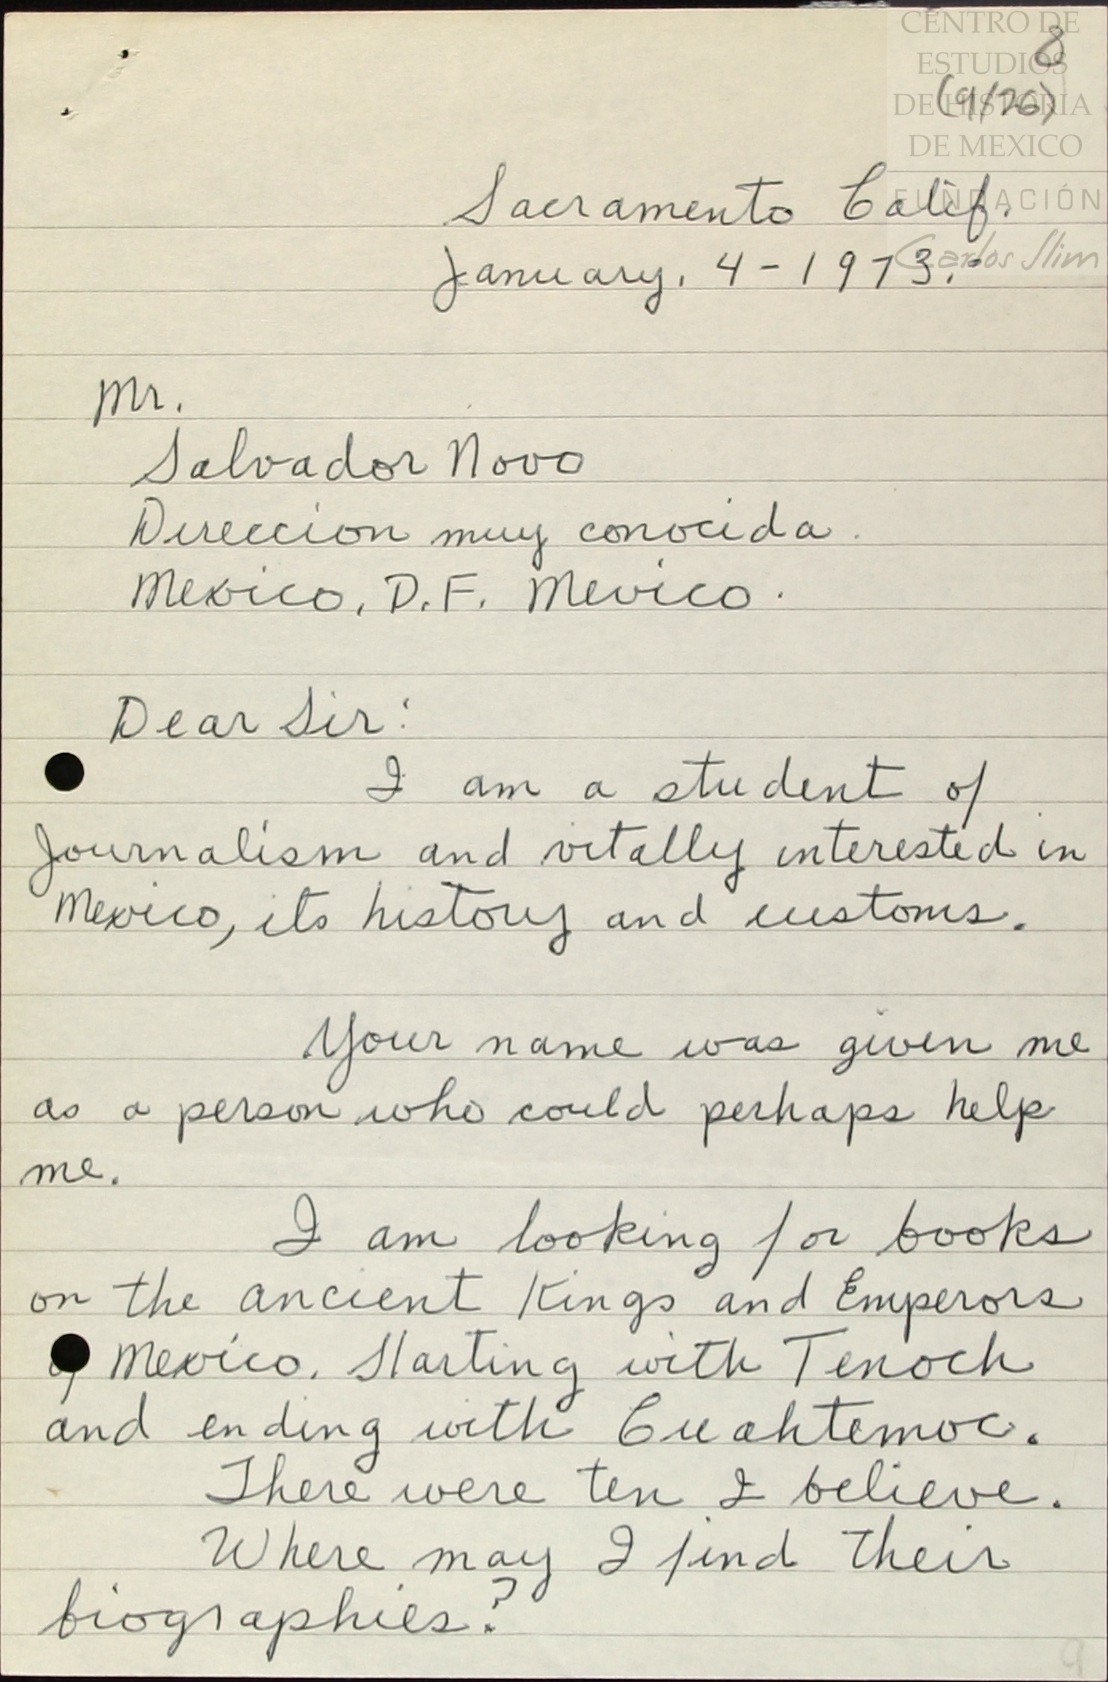 CENTRO DE
ESTUDIOS
DE HISTORIA
DE MEXICO
FUNDACIÓN
Carlos Slim
8
(9/26)
Sacramento Calif.
January. 4-1973.-
Mr.
Salvador Novo
Direccion muy conocida.
Mexico, D.F. Mexico.
Dear Sir:
I am a student of
Journalism and vitally interested in
Mexico, its history and customs.
Your name was given me
as a person who could perhaps help
me.
I am looking for books
on the ancient Kings and Emperors
of Mexico. Starting with Tenoch
and ending with Cuahtemoc.
There were ten I believe.
Where may I find their
biographies?
9